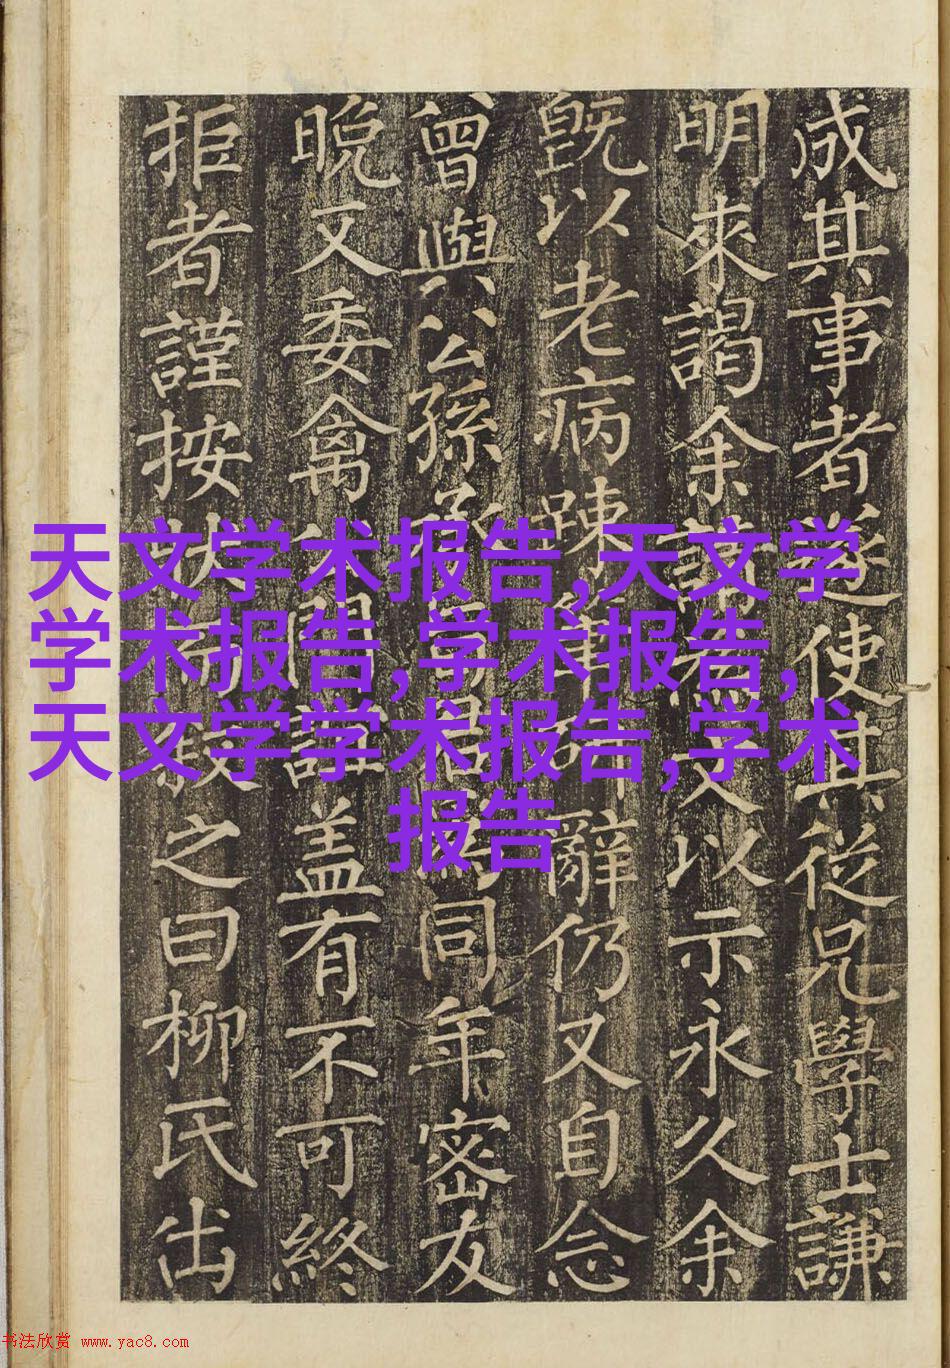 成其事者遂使其從兄學士謙
明來謁余請文以示永久余
既以老病踈辭仍又自念
曾與公孫同年密友
晚又委禽門誼盖有不可終
拒者謹按狀之曰柳氏出
天文学术报告,天文学
学术报告,学术报告,
天文学学术报告,学术
报告
书法欣赏 www.yac8.com